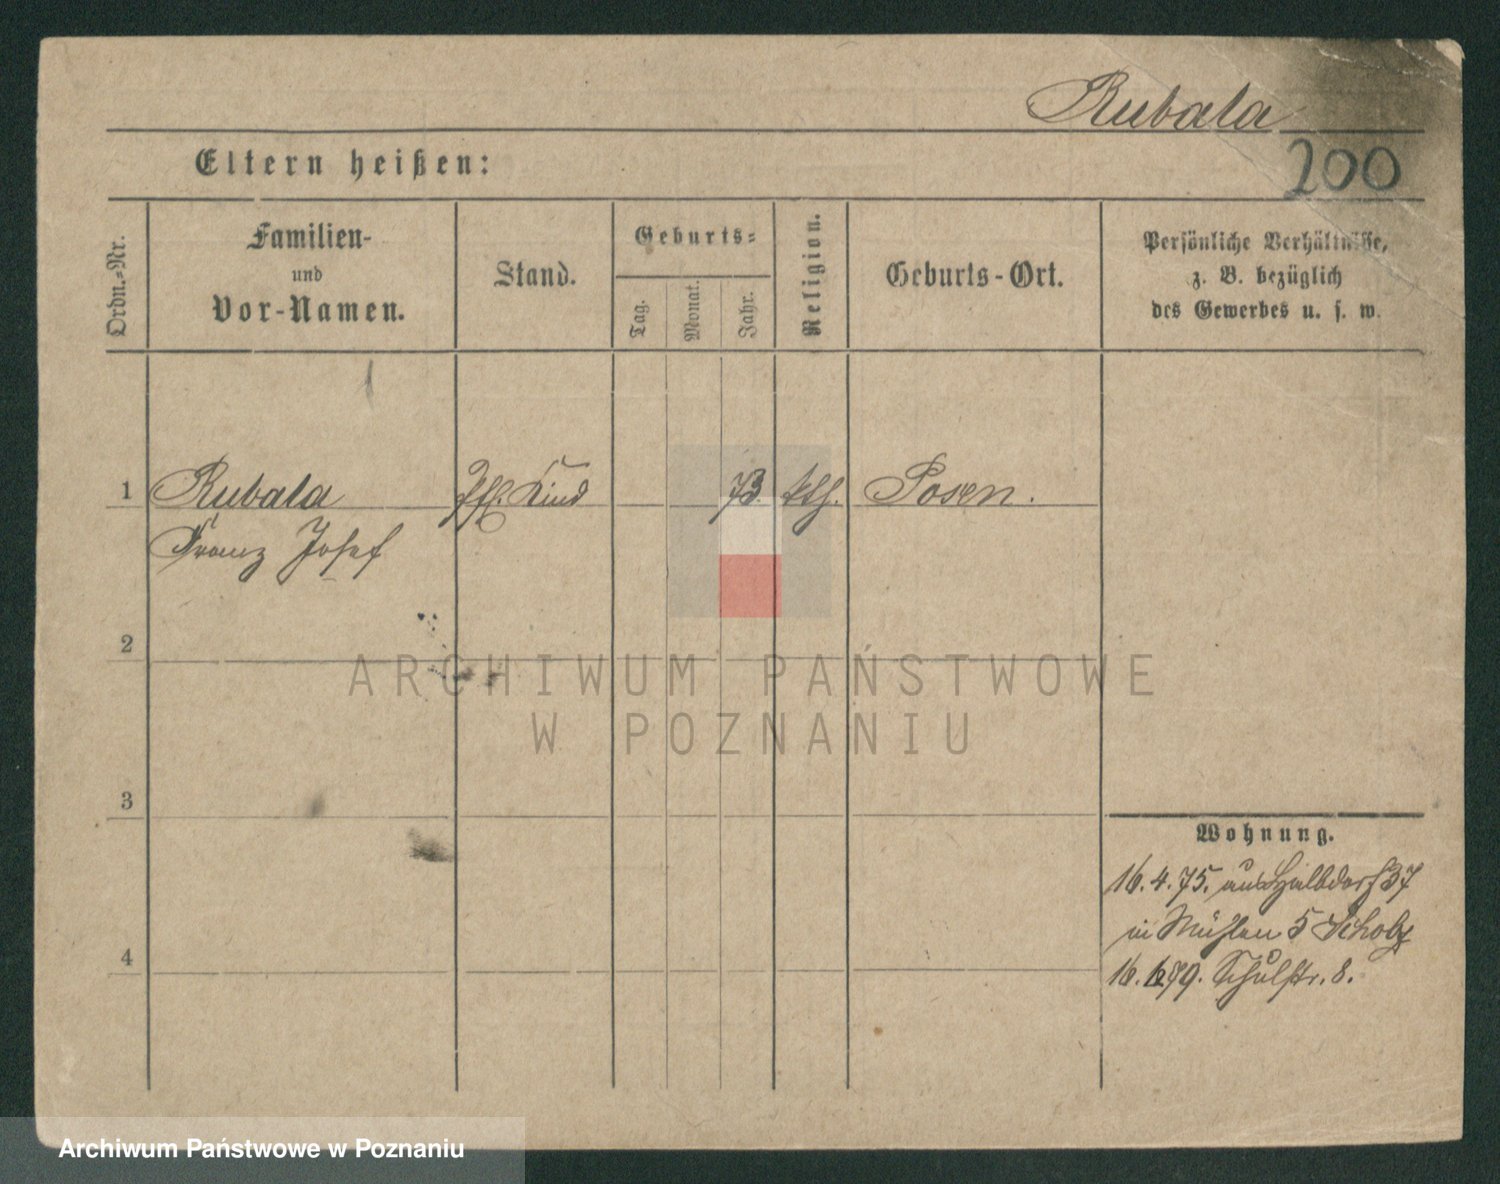 Rubala
200
Eltern heißen:
Ordn.-Nr.
Familien-
und
Vor-Namen.
Stand.
Geburts-
Tag.
Monat.
Jahr.
Religion.
Geburts-Ort.
Persönliche Verhältnisse,
z. B. bezüglich
des Gewerbes u. s. w.
1 Rubala Pfl. Kind 73. kth. Posen.
Franz Josef
2
3
4
Wohnung.
16.4.75. aus Halbdorf 37
in Mühlen 5 Scholz
16. 79. Schulstr. 8.
ARCHIWUM PAŃSTWOWE
W POZNANIU
Archiwum Państwowe w Poznaniu